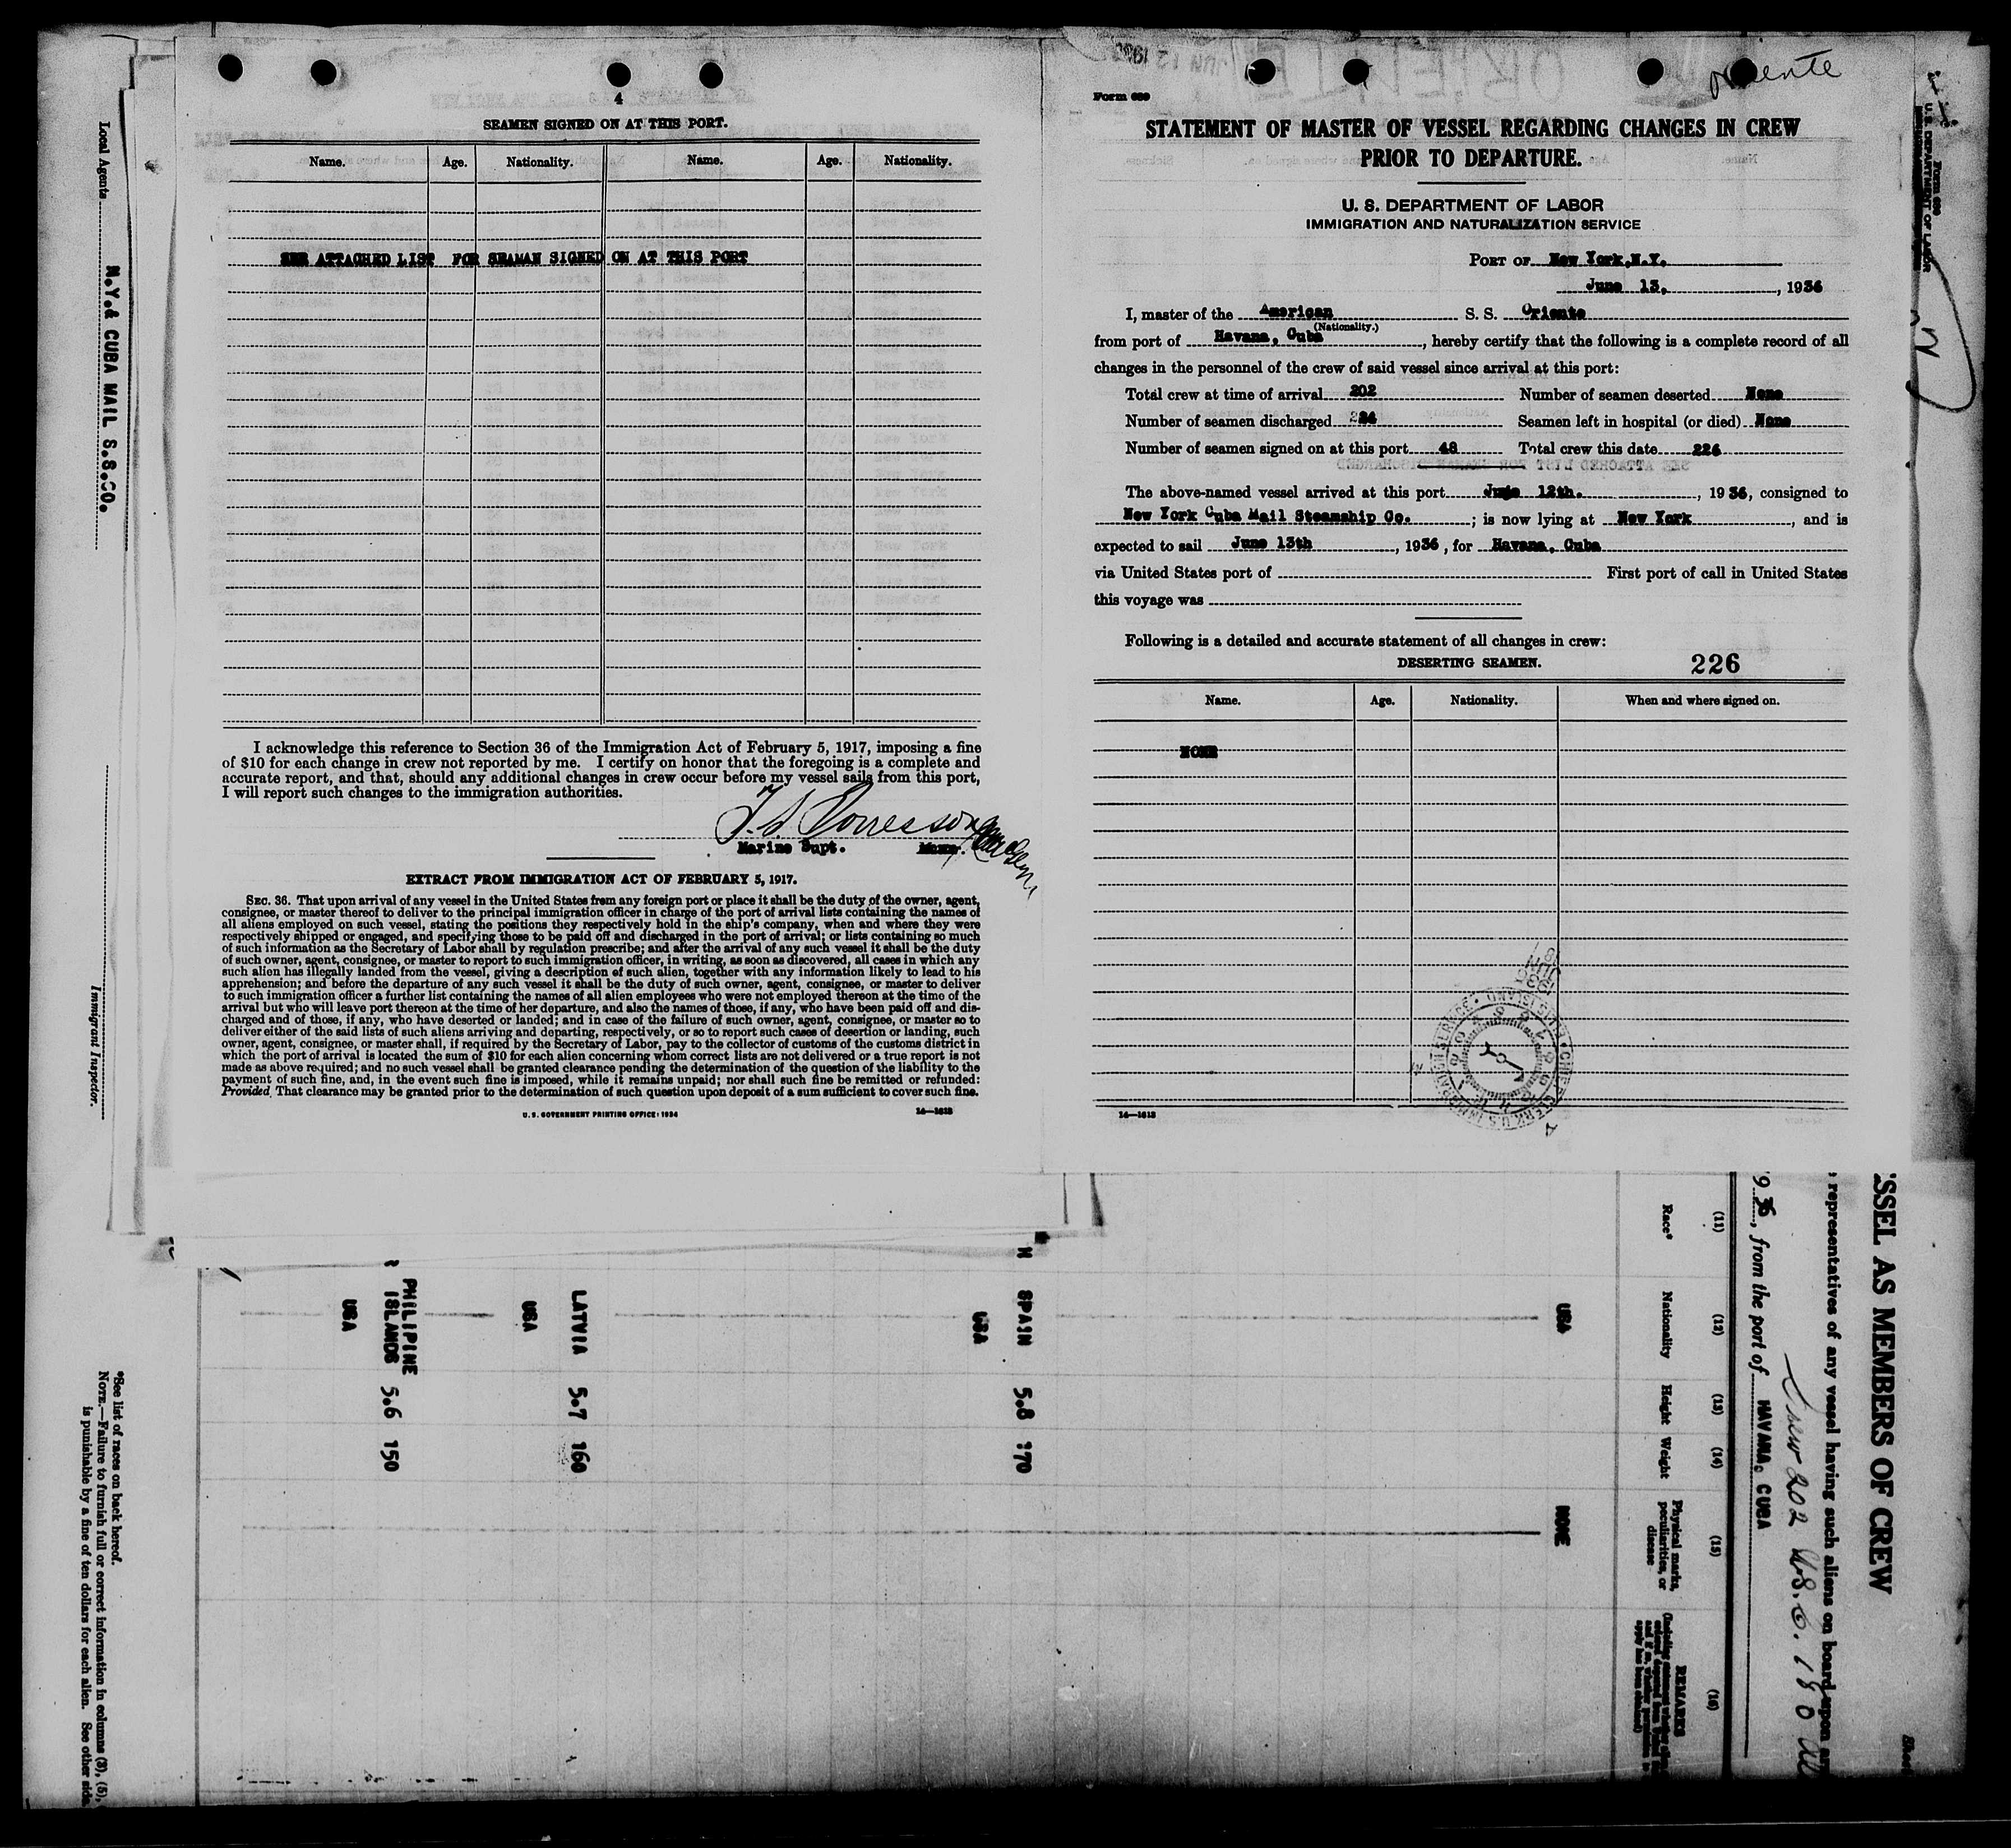 4
SEAMEN SIGNED ON AT THIS PORT.
Name. Age. Nationality. Name. Age. Nationality.
SEE ATTACHED LIST FOR SEAMAN SIGNED ON AT THIS PORT
I acknowledge this reference to Section 36 of the Immigration Act of February 5, 1917, imposing a fine
of $10 for each change in crew not reported by me. I certify on honor that the foregoing is a complete and
accurate report, and that, should any additional changes in crew occur before my vessel sails from this port,
I will report such changes to the immigration authorities.
Marine Supt.
EXTRACT FROM IMMIGRATION ACT OF FEBRUARY 5, 1917.
SEC. 36. That upon arrival of any vessel in the United States from any foreign port or place it shall be the duty of the owner, agent,
consignee, or master thereof to deliver to the principal immigration officer in charge of the port of arrival lists containing the names of
all aliens employed on such vessel, stating the positions they respectively hold in the ship's company, when and where they were
respectively shipped or engaged, and specifying those to be paid off and discharged in the port of arrival; or lists containing so much
of such information as the Secretary of Labor shall by regulation prescribe; and after the arrival of any such vessel it shall be the duty
of such owner, agent, consignee, or master to report to such immigration officer, in writing, as soon as discovered, all cases in which any
such alien has illegally landed from the vessel, giving a description of such alien, together with any information likely to lead to his
apprehension; and before the departure of any such vessel it shall be the duty of such owner, agent, consignee, or master to deliver
to such immigration officer a further list containing the names of all alien employees who were not employed thereon at the time of the
arrival but who will leave port thereon at the time of her departure, and also the names of those, if any, who have been paid off and dis-
charged and of those, if any, who have deserted or landed; and in case of the failure of such owner, agent, consignee, or master so to
deliver either of the said lists of such aliens arriving and departing, respectively, or so to report such cases of desertion or landing, such
owner, agent, consignee, or master shall, if required by the Secretary of Labor, pay to the collector of customs of the customs district in
which the port of arrival is located the sum of $10 for each alien concerning whom correct lists are not delivered or a true report is not
made as above required; and no such vessel shall be granted clearance pending the determination of the question of the liability to the
payment of such fine, and, in the event such fine is imposed, while it remains unpaid; nor shall such fine be remitted or refunded:
Provided, That clearance may be granted prior to the determination of such question upon deposit of a sum sufficient to cover such fine.
U. S. GOVERNMENT PRINTING OFFICE: 1934 14—1613
Oriente
Form 689
STATEMENT OF MASTER OF VESSEL REGARDING CHANGES IN CREW
PRIOR TO DEPARTURE.
U. S. DEPARTMENT OF LABOR
IMMIGRATION AND NATURALIZATION SERVICE
PORT OF New York, N.Y.
June 13, , 1936
I, master of the American S. S. Oriente
(Nationality.)
from port of Havana, Cuba , hereby certify that the following is a complete record of all
changes in the personnel of the crew of said vessel since arrival at this port:
Total crew at time of arrival 202 Number of seamen deserted None
Number of seamen discharged 24 Seamen left in hospital (or died) None
Number of seamen signed on at this port 48 Total crew this date 226
The above-named vessel arrived at this port June 12th. , 1936, consigned to
New York Cuba Mail Steamship Co. ; is now lying at New York , and is
expected to sail June 13th , 1936, for Havana, Cuba
via United States port of First port of call in United States
this voyage was
Following is a detailed and accurate statement of all changes in crew:
DESERTING SEAMEN. 226
Name. Age. Nationality. When and where signed on.
NONE
14—1613
Local Agents N.Y.& CUBA MAIL S.S.CO.
Immigrant Inspector.
Form 689
U. S. DEPARTMENT OF LABOR
SSEL AS MEMBERS OF CREW
representatives of any vessel having such aliens on board upon
Crew 202 U.S.C. 180
936, from the port of HAVANA, CUBA
(11) (12) (13) (14) (15) (16)
Race* Nationality Height Weight Physical marks, peculiarities, or disease REMARKS
USA NONE
SPAIN 5.8 170
USA
LATVIA 5.7 160
USA
PHILIPINE
ISLANDS 5.6 150
USA
*See list of races on back hereof.
NOTE.—Failure to furnish full or correct information in columns (3), (5),
is punishable by a fine of ten dollars for each alien. See other side.